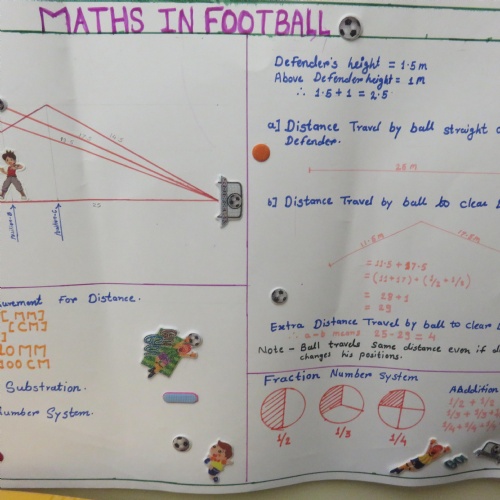 MATHS IN FOOTBALL
Defender's height = 1.5 m
Above Defender height = 1M
∴ 1.5 + 1 = 2.5
a] Distance Travel by ball straight
Defender.
b] Distance Travel by ball to clear
11.5 m
= 11.5 + 17.5
= (11+17) + (1/2 + 1/2)
= 28 + 1
= 29
Extra Distance Travel by ball to clear
∴ a-b means 25-29 = 4
Note - Ball travels same distance even if
changes his positions.
25
urement For Distance.
[MM]
[CM]
]
10 MM
100 CM
Substration.
Number System.
Fraction Number System
1/2
1/3
1/4
Addition
1/2 + 1/2
1/3 + 1/3
1/4 + 1/4 + 1/4